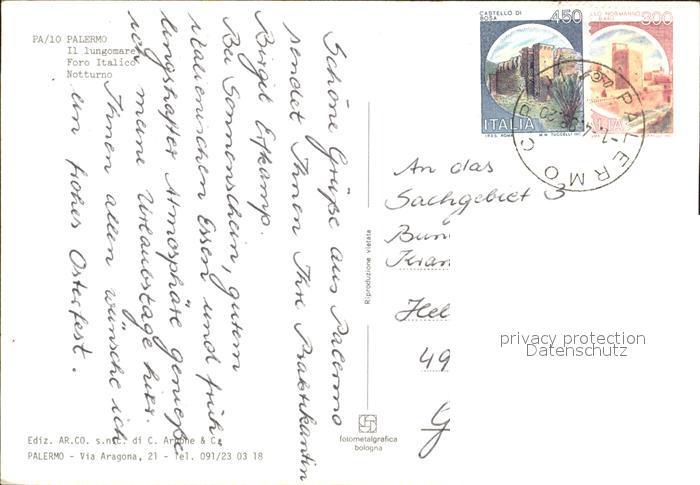 PA/10 PALERMO
Il lungomare
Foro Italico
Notturno
Schöne Grüße aus Palermo
sendet Ihnen Ihre Praktikantin
Birgit
Bei Sonnenschein, gutem
italienischen Essen und früh-
lingshafter Atmosphäre genieße
ich meine Urlaubstage hier.
Ihnen allen wünsche ich
ein frohes Osterfest.
Ediz. AR.CO. s.n.c. di C. Arnone & C.
PALERMO - Via Aragona, 21 - Tel. 091/23 03 18
Riproduzione vietata
fotometalgrafica
bologna
CASTELLO DI
BOSA
450
ITALIA
I.P.Z.S. ROMA
M.M. TUCCELLI
LLO NORMANNO
BARI
300
ALIA
PALERMO C.P.
An das
Sachgebiet 3
Bun
Kran
Hel
49
G
privacy protection
Datenschutz